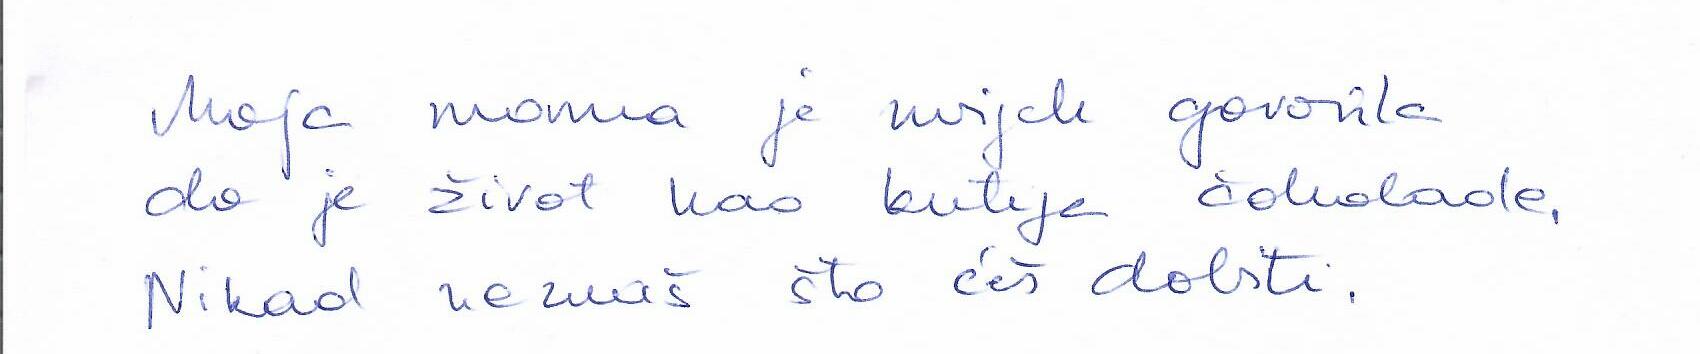 Moja mama je uvijek govorila
da je život kao kutija čokolade,
Nikad neznaš što ćeš dobiti.